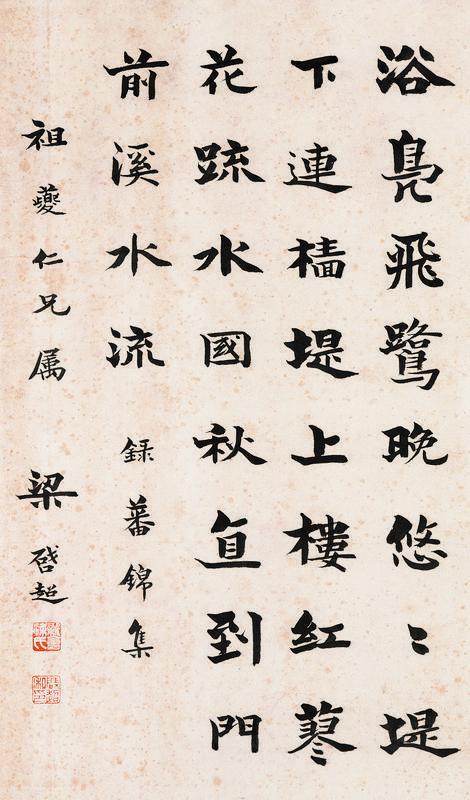 浴鳧飛鷺晚悠〻堤
下連檣堤上樓紅蓼
花疏水國秋直到門
前溪水流
録蕃錦集
祖夔仁兄属
梁啓超